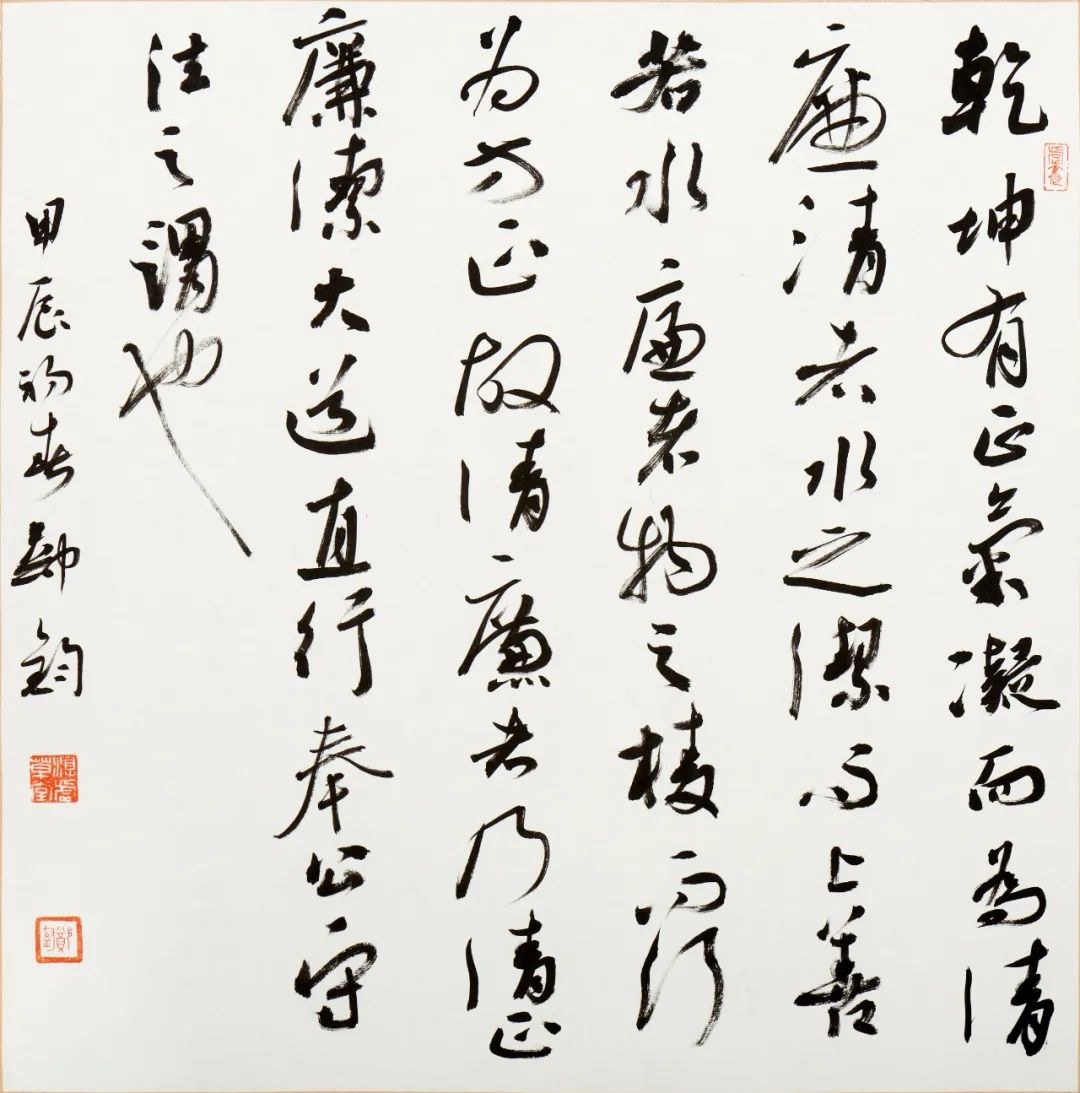 乾坤有正氣凝而為清
廉清者水之潔而上善
若水廉者物之棱而行
为方正故清廉者乃清正
廉潔大道直行奉公守
法之謂也
甲辰初春鄭鈞